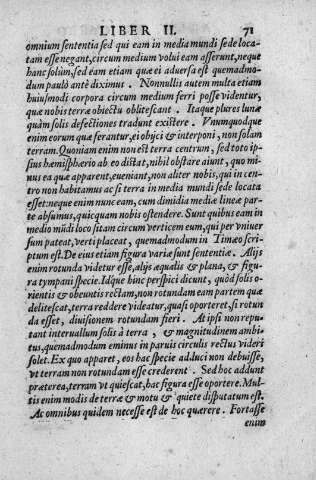 LIBER II. 71
omnium sententia sed qui eam in media mundi sede loca-
tam esse negant, circum medium volui eam asserunt, neque
hanc solum, sed eam etiam quæ ei aduersa est quemadmo-
dum paulò antè diximus. Nonnullis autem multa etiam
huiusmodi corpora circum medium ferri posse videntur,
quæ nobis terræ obiectu oblitescant. Itaque plures lunæ
quàm solis defectiones tradunt existere. Vnumquodque
enim eorum quæ ferantur, ei obijci & interponi, non solam
terram. Quoniam enim non est terra centrum, sed toto ip-
sius hæmisphærio ab eo distat, nihil obstare aiunt, quo mi-
nus ea quæ apparent, eueniant, non aliter nobis, qui in cen-
tro non habitamus ac si terra in media mundi sede locata
esset: neque enim nunc eam, cum dimidia mediæ lineæ par-
te absumus, quicquam nobis ostendere. Sunt quibus eam in
medio mūdi loco sitam circum verticem eum, qui per vniuer
sum pateat, verti placeat, quemadmodum in Timæo scri-
ptum est. De eius etiam figura variæ sunt sententiæ. Alijs
enim rotunda videtur esse, alijs æqualis & plana, & figu-
ra tympani specie. Idque hinc perspici dicunt, quòd solis o-
rientis & obeuntis rectam, non rotundam eam partem quæ
delitescat, terra reddere videatur, quasi oporteret, si rotun
da esset, diuisionem rotundam fieri. At ipsi non repu-
tant interuallum solis à terra, & magnitudinem ambi-
tus, quemadmodum eminus in paruis circulis rectus videri
solet. Ex quo apparet, eos hac specie adduci non debuisse,
vt terram non rotundam esse crederent. Sed hoc addunt
præterea, terram vt quiescat, hac figura esse oportere. Mul-
tis enim modis de terræ & motu & quiete disputatum est.
Ac omnibus quidem necesse est de hoc quærere. Fortasse
enim